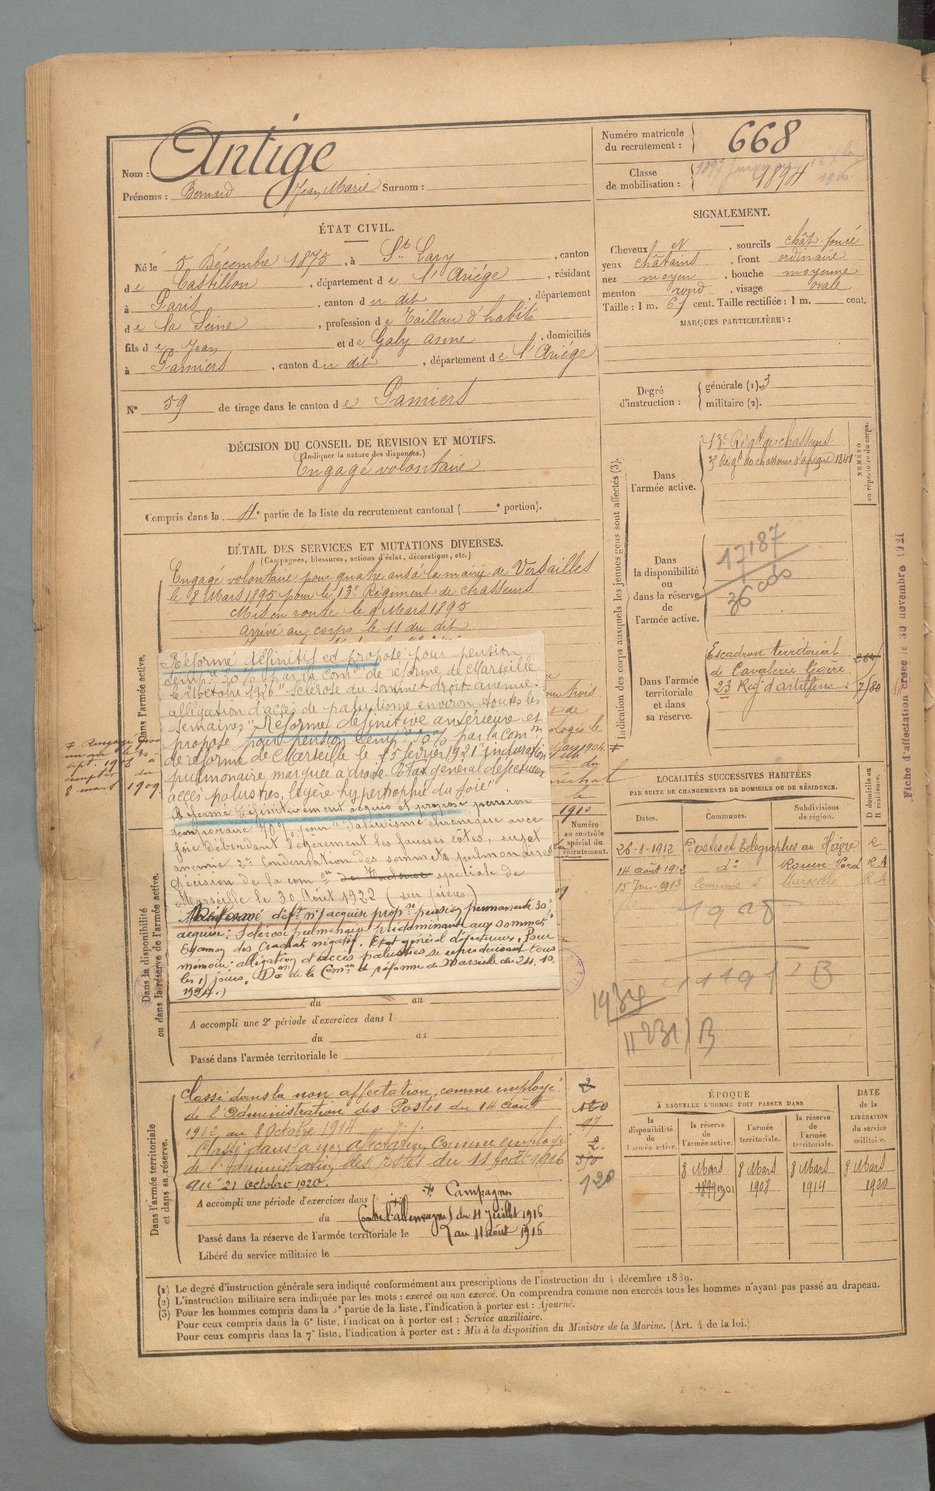 Nom : Antige
Prénoms : Bernard Jean Marie Surnom :
Numéro matricule du recrutement : 668
Classe de mobilisation : 1894
ÉTAT CIVIL.
Né le 5 Décembre 1875, à St Lary, canton
de Castillon, département de l'Ariége, résidant
à Paris, canton du dit, département
de la Seine, profession de Tailleur d'habits
fils de Jean et de Galy Anne, domiciliés
à Pamiers, canton du dit, département de l'Ariége
N° 59 de tirage dans le canton de Pamiers
DÉCISION DU CONSEIL DE REVISION ET MOTIFS.
(Indiquer la nature des dispenses.)
Engagé volontaire
Compris dans la 4e partie de la liste du recrutement cantonal ( e portion).
SIGNALEMENT.
Cheveux N, sourcils chât. foncé
yeux châtains, front ordinaire
nez moyen, bouche moyenne
menton rond, visage ovale
Taille : 1 m. 67 cent. Taille rectifiée : 1 m. cent.
MARQUES PARTICULIÈRES :
Degré d'instruction : générale (1). 3
militaire (2).
Indication des corps auxquels les jeunes gens sont affectés (3).
NUMÉRO au répertoire du corps.
Dans l'armée active.
13e Régt de chasseurs
3e Régt de chasseurs d'afrique
Dans la disponibilité ou dans la réserve de l'armée active.
17187
Dans l'armée territoriale et dans sa réserve.
Escadron territorial
de Cavalerie légère
23 Régt d'artillerie
DÉTAIL DES SERVICES ET MUTATIONS DIVERSES.
(Campagnes, blessures, actions d'éclat, décorations, etc.)
Dans l'armée active.
Engagé volontaire pour quatre ans à la mairie de Versailles
le 8 Mars 1895 pour le 13e Régiment de chasseurs
Mis en route le 8 Mars 1895
Arrivé au corps le 11 du dit
Réformé définitif et proposé pour pension
temp. 20 % par la Comon de réforme de Marseille
le 21 octobre 1916 "sclérose du sommet droit anémie.
allégation d'accès de paludisme environ toutes les
semaines" Réforme définitive antérieure et
proposé pour pension temp. 30% par la Comon
de réforme de Marseille le 15 février 1921 induration
pulmonaire marquée à droite. Etat général défectueux
accès palustres, légère hypertrophie du foie"
Réforme définitivement acquis et proposé pension
temporaire 40% pour "Paludisme chronique avec
foie débordant légèrement les fausses côtes, sujet
anémié 2° Condensation des sommets pulmonaires
Décision de la comon spéciale de
Marseille le 30 Août 1922
acquise : Sclérose pulmonaire prédominant aux sommets
Examen des crachats négatif. Etat général défectueux. Pour
mémoire : allégation d'accès palustres se reproduisant tous
les 15 jours. Don de la Comon de réforme de Marseille du 24. 10.
1924.)
Numéro au contrôle spécial du recrutement.
LOCALITÉS SUCCESSIVES HABITÉES
PAR SUITE DE CHANGEMENTS DE DOMICILE OU DE RÉSIDENCE.
Dates. Communes. Subdivisions de région. D domicile ou R résidence.
26-1-1912 Postes et Télégraphes au Hâvre R
14 août 1912 do Rouen-Nord R
15 Janv 1913 Marseille R
Dans la disponibilité ou dans la réserve de l'armée active.
du au
A accompli une 2e période d'exercices dans l
du au
Passé dans l'armée territoriale le
Dans l'armée territoriale et dans sa réserve.
Classé dans la non affectation comme employé
de l'Administration des Postes du 14 août
1912 au 8 Octobre 1914
Classé dans la non affectation comme employé
de l'administration des Postes du 11 Août 1916
au 21 octobre 1920.
A accompli une période d'exercices dans
Campagnes
du Contre l'Allemagne du 11 Juillet 1915
Passé dans la réserve de l'armée territoriale le
au 11 août 1916
Libéré du service militaire le
120
ÉPOQUE
À LAQUELLE L'HOMME DOIT PASSER DANS
la disponibilité de l'armée active.
la réserve de l'armée active.
l'armée territoriale.
la réserve de l'armée territoriale.
DATE de la LIBÉRATION du service militaire.
8 Mars 1901
8 Mars 1908
8 Mars 1914
8 Mars 1920
(1) Le degré d'instruction générale sera indiqué conformément aux prescriptions de l'instruction du 4 décembre 1889.
(2) L'instruction militaire sera indiquée par les mots : exercé ou non exercé. On comprendra comme non exercés tous les hommes n'ayant pas passé au drapeau.
(3) Pour les hommes compris dans la 5e partie de la liste, l'indication à porter est : Ajourné.
Pour ceux compris dans la 6e liste, l'indication à porter est : Service auxiliaire.
Pour ceux compris dans la 7e liste, l'indication à porter est : Mis à la disposition du Ministre de la Marine. (Art. 4 de la loi.)
Fiche d'affectation créée le 30 novembre 1921